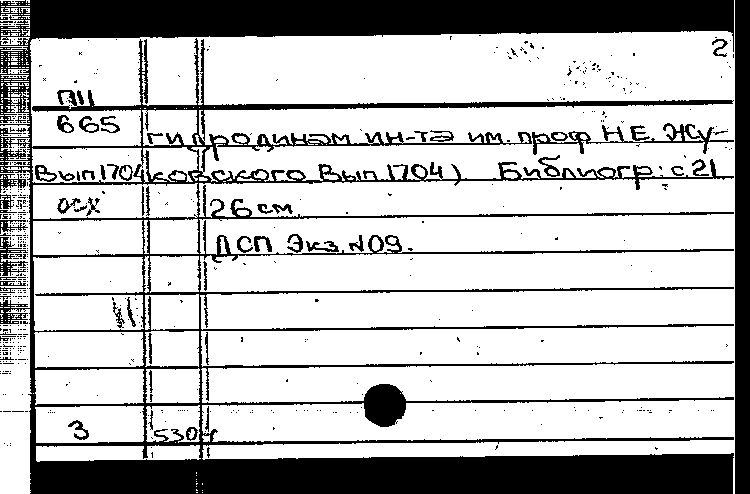 2
ПII
665 гидродинам. ин-та им. проф Н.Е. Жу-
Вып1704 ковского. Вып. 1704) Библиогр: с. 21
осх 26 см.
ДСП Экз. №09.
3 5304